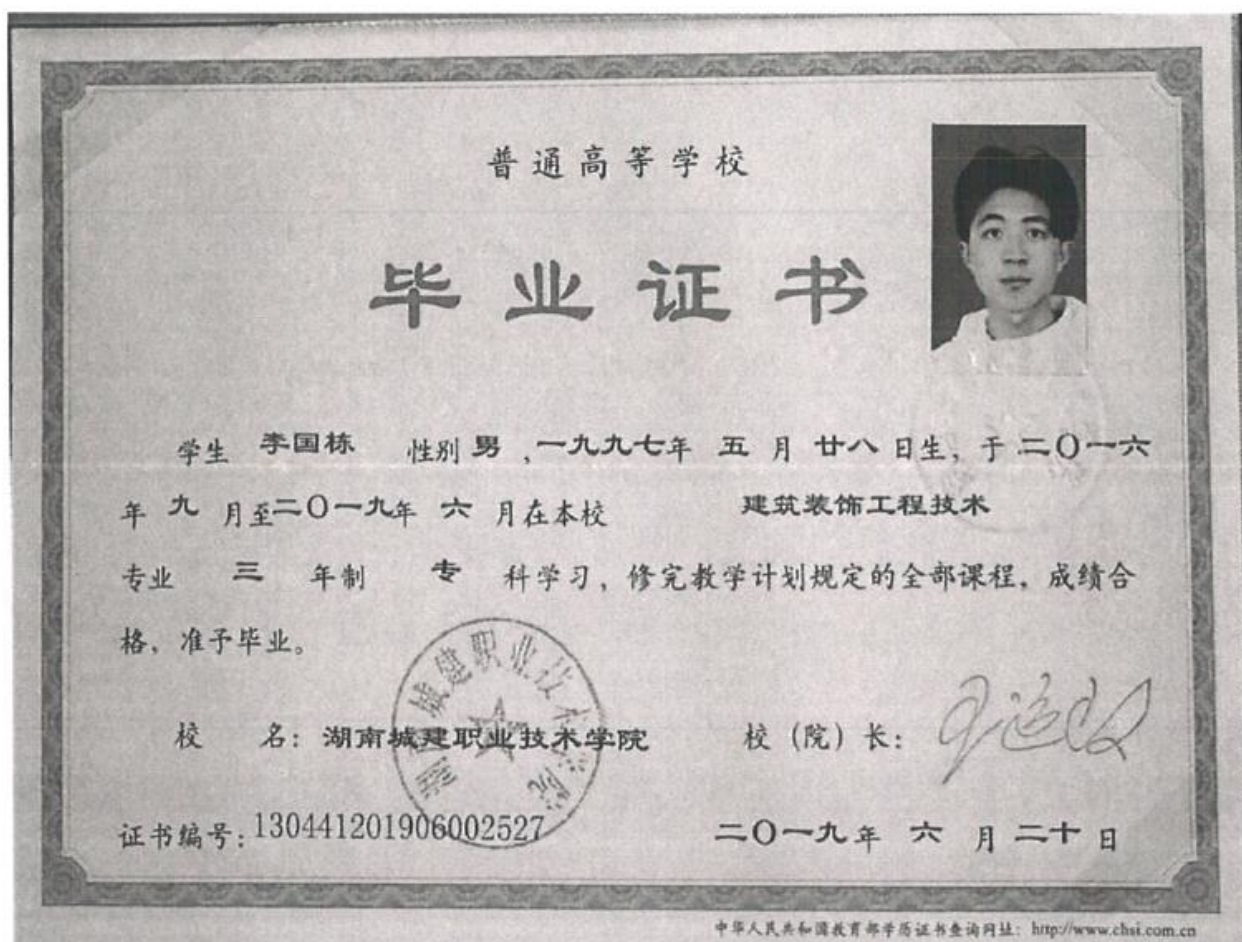 普通高等学校
毕业证书
学生 李国栋 性别 男,一九九七年 五 月 廿八 日生,于 二〇一六
年 九 月至二〇一九年 六 月在本校 建筑装饰工程技术
专业 三 年制 专 科学习,修完教学计划规定的全部课程,成绩合
格,准予毕业。
湖南城建职业技术学院
校 名:湖南城建职业技术学院 校(院)长:
证书编号:130441201906002527 二〇一九年 六 月 二十 日
中华人民共和国教育部学历证书查询网址:http://www.chsi.com.cn